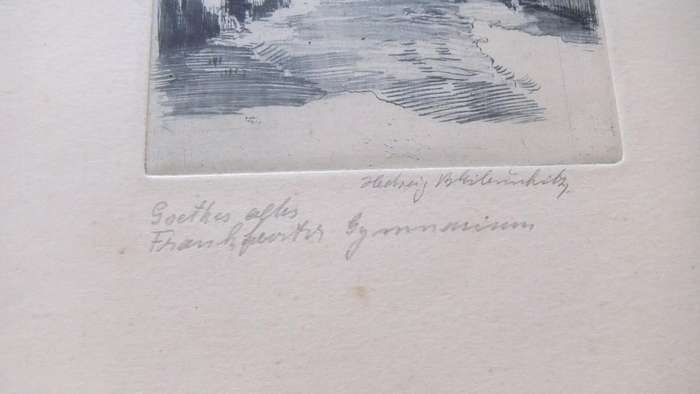 Hedwig
Goethes altes
Frankfurter Gymnasium